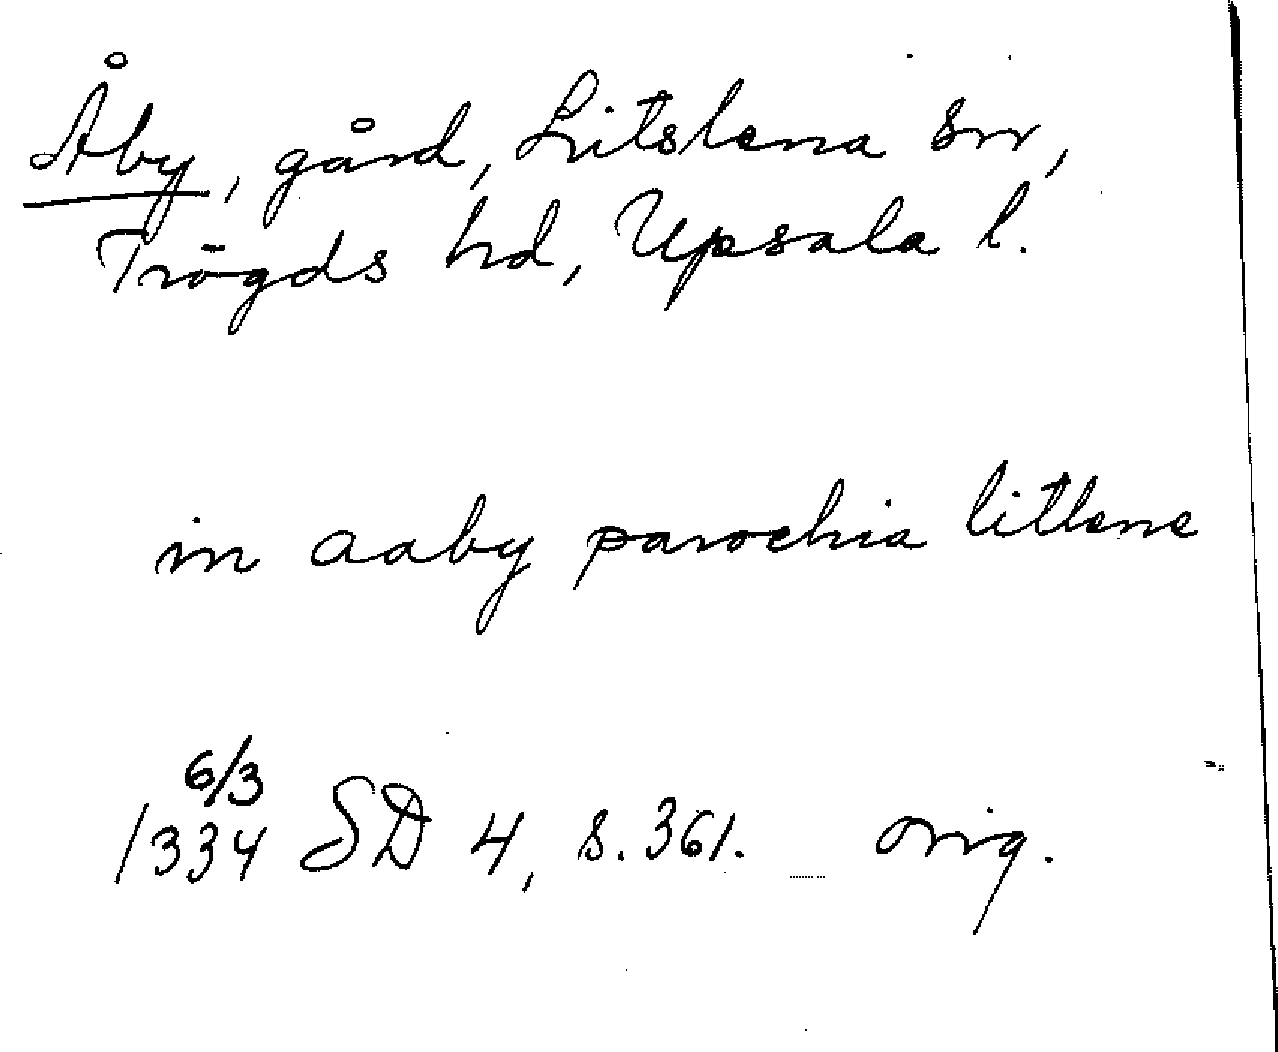 Åby, gård, Litslena sn,
Trögds hd, Upsala l.
in aaby parochia litlene
6/3
1334 SD 4, s. 361. orig.